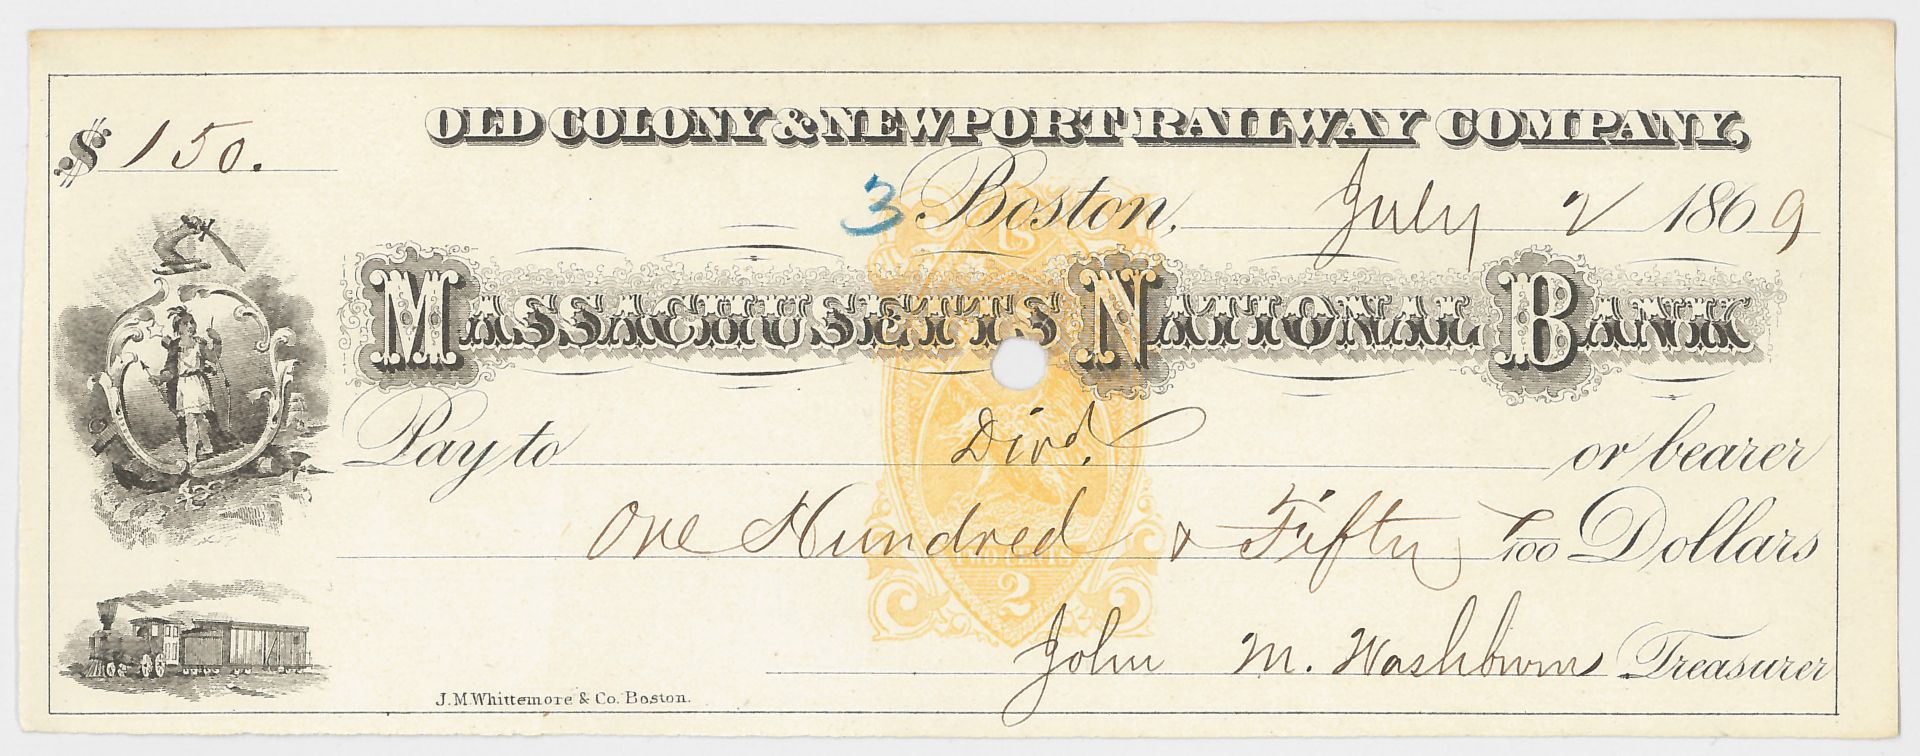 OLD COLONY & NEWPORT RAILWAY COMPANY,
$ 150.
3 Boston, July 2 1869
MASSACHUSETTS NATIONAL BANK
Pay to Divd. or bearer
One Hundred & Fifty /100 Dollars
TWO CENTS
2
John M. Washburn Treasurer
J.M. Whittemore & Co. Boston.